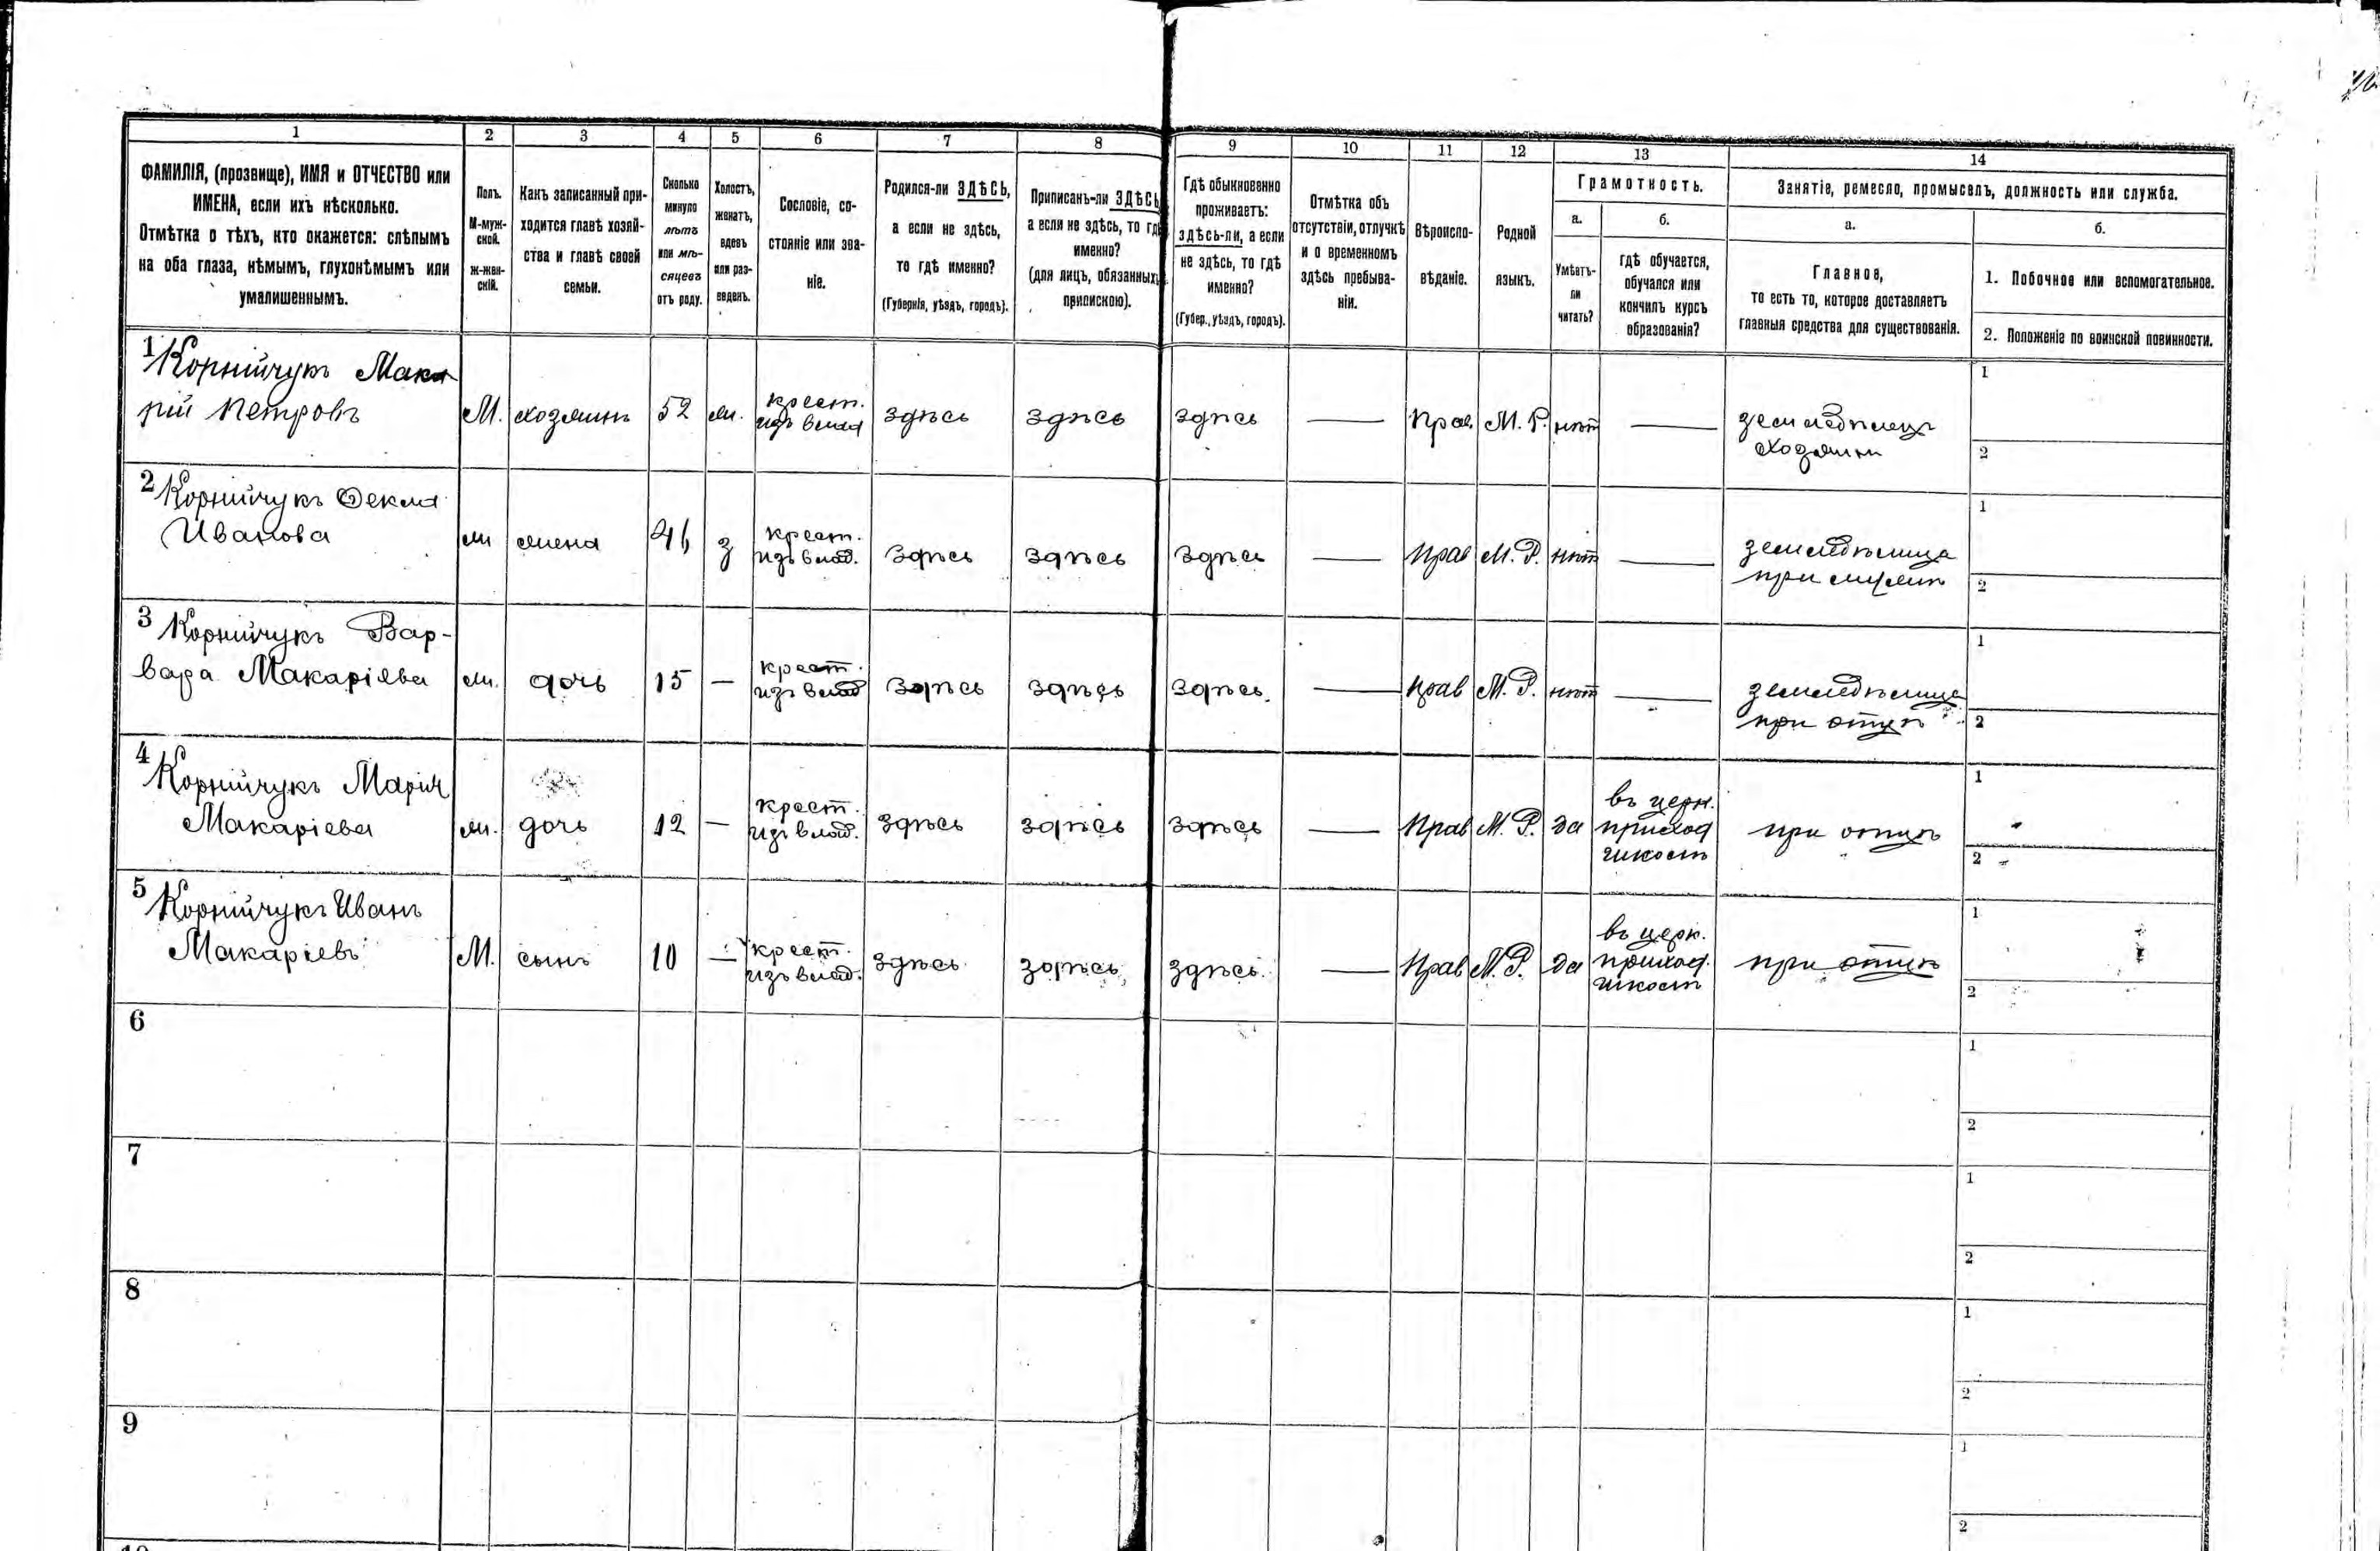 1 2 3 4 5 6 7 8 9 10 11 12 13 14
ФАМИЛІЯ, (прозвище), ИМЯ и ОТЧЕСТВО или
ИМЕНА, если ихъ нѣсколько.
Отмѣтка о тѣхъ, кто окажется: слѣпымъ
на оба глаза, нѣмымъ, глухонѣмымъ или
умалишеннымъ.
Полъ.
М-муж-
ской.
Ж-жен-
скій.
Какъ записанный при-
ходится главѣ хозяй-
ства и главѣ своей
семьи.
Сколько
минуло
лѣтъ
или мѣ-
сяцевъ
отъ роду.
Холостъ,
женатъ,
вдовъ
или раз-
веденъ.
Сословіе, со-
стояніе или зва-
ніе.
Родился-ли ЗДѢСЬ,
а если не здѣсь,
то гдѣ именно?
(Губернія, уѣздъ, городъ).
Приписанъ-ли ЗДѢСЬ
а если не здѣсь, то гдѣ
именно?
(для лицъ, обязанныхъ
припискою).
Гдѣ обыкновенно
проживаетъ:
здѣсь-ли, а если
не здѣсь, то гдѣ
именно?
(Губер., уѣздъ, городъ).
Отмѣтка объ
отсутствіи, отлучкѣ
и о временномъ
здѣсь пребыва-
ніи.
Вѣроиспо-
вѣданіе.
Родной
языкъ.
Грамотность.
а.
Умѣетъ-
ли
читать?
б.
гдѣ обучается,
обучался или
кончилъ курсъ
образованія?
Занятіе, ремесло, промыселъ, должность или служба.
а.
Главное,
то есть то, которое доставляетъ
главныя средства для существованія.
б.
1. Побочное или вспомогательное.
2. Положеніе по воинской повинности.
1 Корнійчукъ Мака
рій Петровъ
М.
хозяинъ
52
ж.
крест.
изъ влад
здѣсь
здѣсь
здѣсь
—
Прав
М. Р.
нѣт
—
земледѣлецъ
хозяинъ
1
2
2 Корнійчукъ Ѳекла
Иванова
ж
жена
46
з
крест.
изъ влад.
здѣсь
здѣсь
здѣсь
—
Прав
М. Р.
нѣт
—
земледѣлица
при мужѣ
1
2
3 Корнійчукъ Вар-
вара Макаріева
ж.
дочь
15
—
крест.
изъ влад
здѣсь
здѣсь
здѣсь
—
Прав
М. Р.
нѣт
—
земледѣлица
при отцѣ
1
2
4 Корнійчукъ Марія
Макаріева
ж.
дочь
12
—
крест.
изъ влад.
здѣсь
здѣсь
здѣсь
—
Прав
М. Р.
да
въ церк.
приход
школѣ
при отцѣ
1
2
5 Корнійчукъ Иванъ
Макаріевъ
М.
сынъ
10
—
крест.
изъ влад.
здѣсь
здѣсь
здѣсь
—
Прав
М. Р.
да
въ церк.
приход.
школѣ
при отцѣ
1
2
6
1
2
7
1
2
8
1
2
9
1
2